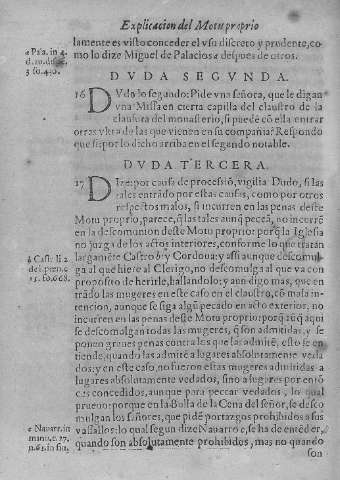 Explicacion del Motu proprio
lamente es visto conceder el vso discreto y prudente, co
mo lo dize Miguel de Palacios a despues de otros.
a Pa'a. in 4.
3 fo. 430.
DVDA SEGVNDA.
16 DVdo lo segundo: Pide vna señora, que le digan
vna Missa en cierta capilla del claustro de la
clausura del monasterio, si puede cō ella entrar
otras vltra de las que vienen en su compañia? Respondo
que si: por lo dicho arriba en el segundo notable.
DVDA TERCERA.
17 Dize: por causa de processiō, vigilia Dudo, si las
tales entrādo por estas causas, como por otros
respectos malos, si incurren en las penas deste
Motu proprio, parece, q̄ las tales aunq̄ peccā, no incurrē
en la descomunion deste Motu proprio: porq̄ la Iglesia
no juzga de los actos interiores, conforme lo que tratan
largamēte Castro b y Cordoua: y assi aunque descomul
ga al que hiere al Clerigo, no descomulga al que va con
proposito de herirle, hallandolo: y aun digo mas, que en
trādo las mugeres en este caso en el claustro, cō mala in
tencion, aunque se siga algū peccado en acto exterior, no
incurren en las penas deste Motu proprio: porq̄ aqui
se descomulgan todas las mugeres, q̄ son admitidas, y se
ponen graues penas contra los que las admitē, esto se en
tiende, quando las admitē a lugares absolutamente veda
dos: y en este caso, no fueron estas mugeres admitidas a
lugares absolutamente vedados, sino a lugares por entō
ces concedidos, aunque para peccar vedados, lo qual
prueuo: porque en la Bulla de la Cena del señor, se desco
mulgan los señores, que pidē portazgos prohibidos a sus
vassallos: lo qual segun dize Nauarro c, se ha de entēder,
quando son absolutamente prohibidos, mas no quando
b Cast. li 2
15. fo. 068.
c Nauarr. in
manu. c. 27,
n. 61. in fin.
son